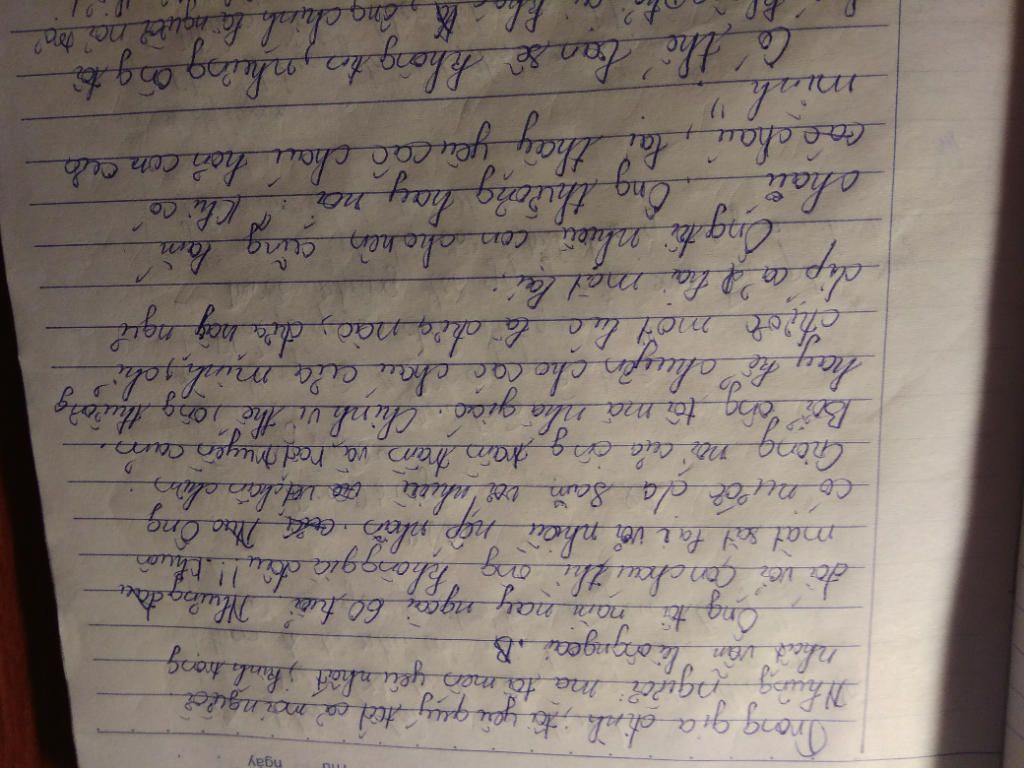 Thứ ngày
Trong gia đình, tôi yêu quý tất cả mọi người.
Nhưng người mà tôi mến yêu nhất, kính trọng
nhất vẫn là ông ngoại.
Ông tôi năm nay ngoài 60 tuổi. Nhưng đâu
đối với con cháu thì ông không già đâu!! Khuôn
mặt sát lại với nhiều nếp nhăn. Ông
có nước da sẫm với nhiều vết chân chim.
Giọng nói của ông trầm trầm và rất truyền cảm.
Bởi ông tôi mà nhà giáo. Chính vì thế ông thường
hay kể chuyện cho các cháu của mình, chỉ
một lúc là đứa nào, đứa nấy ngủ
díp cả 2 hai mắt lại.
Ông tôi nhiều con cho nên cũng lắm
cháu. Ông thường hay nói: "Khi có
các cháu, tôi thấy yêu các cháu hơn con của
mình"
Có thể bạn sẽ không tin, nhưng ông tôi
ông chính là người